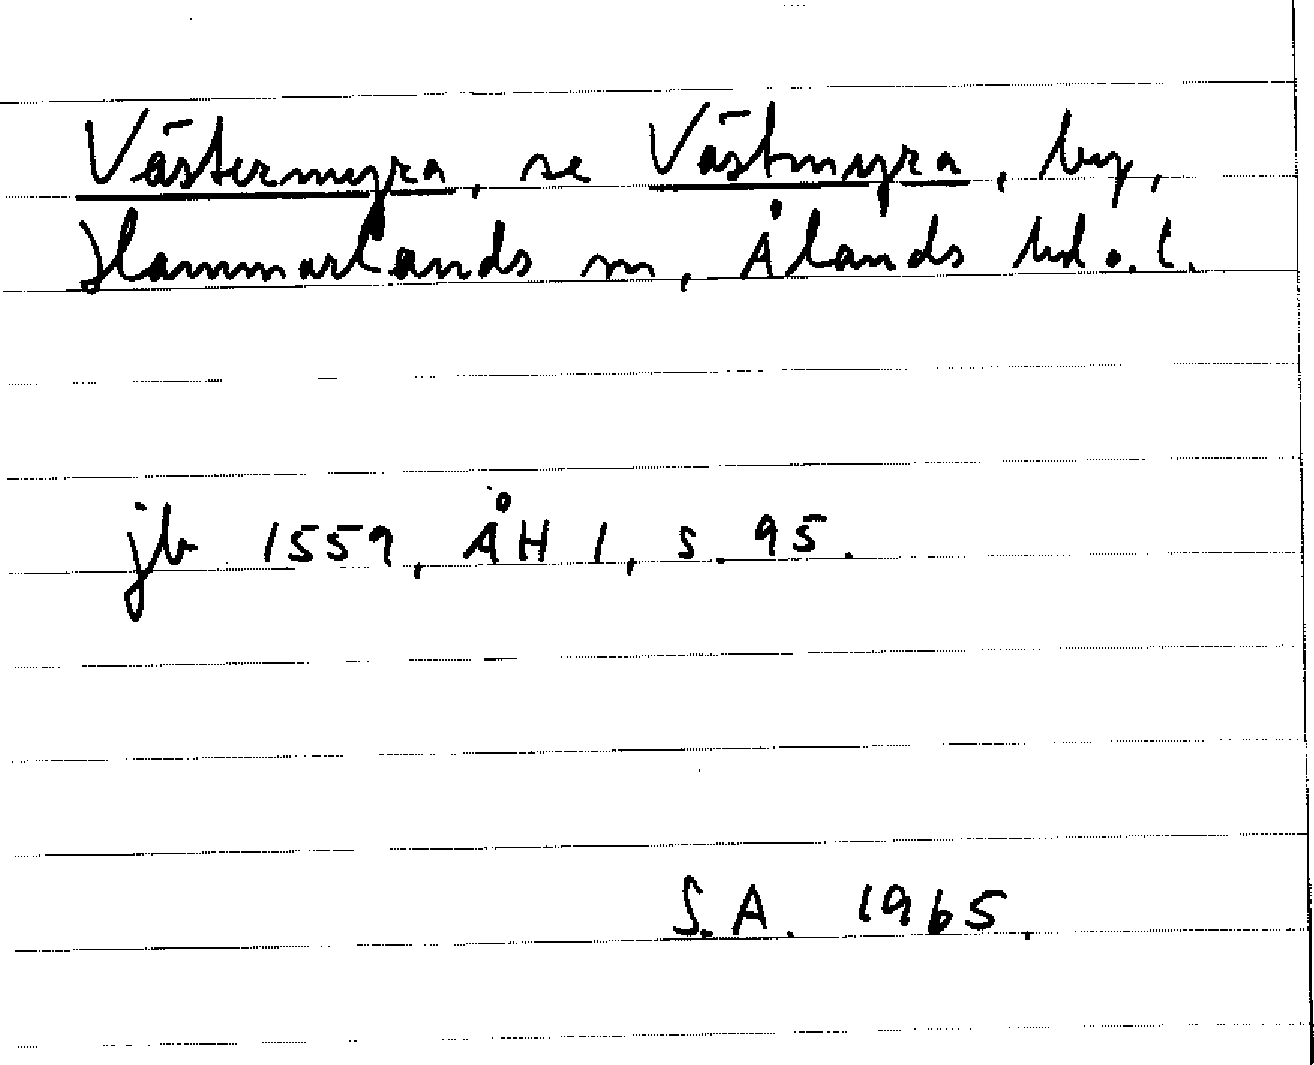 Västermyra, se Västmyra, by,
Hammarlands sn, Ålands hd o. l.
jb 1559, ÅH 1, s. 95.
S.A. 1965.